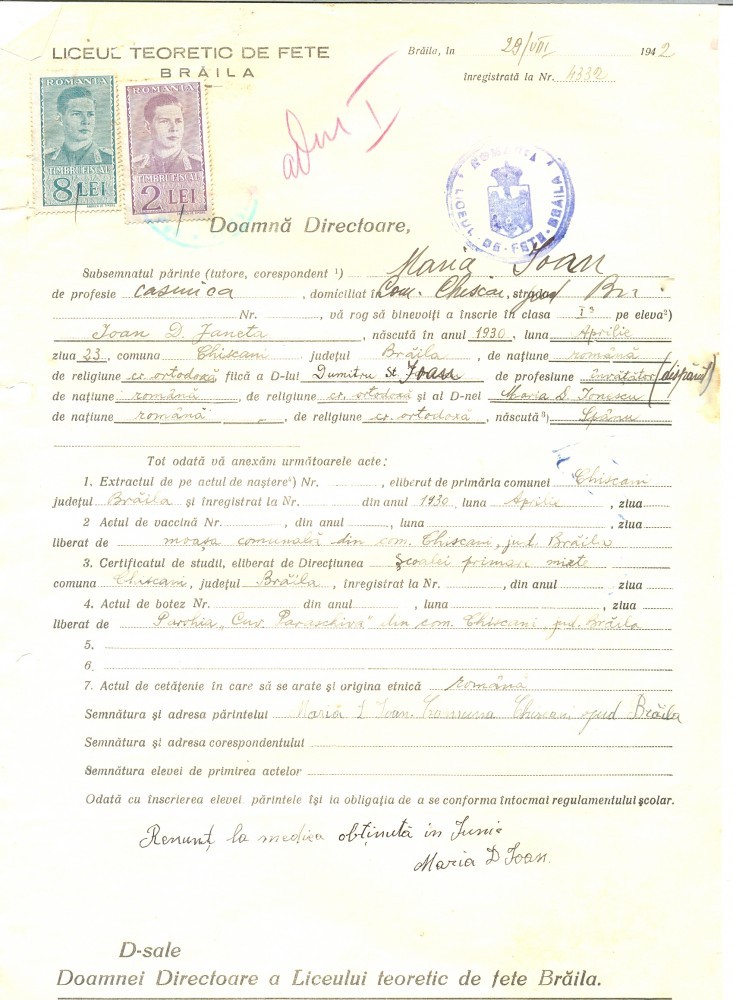 LICEUL TEORETIC DE FETE
BRĂILA
Brăila, în 29/VIII 1942
înregistrată la Nr. 4332
ROMANIA
TIMBRU FISCAL
8 LEI
ROMANIA
TIMBRU FISCAL
2 LEI
adm I
ROMANIA
LICEUL-DE-FETE-BRĂILA
Doamnă Directoare,
Subsemnatul părinte (tutore, corespondent ¹) Maria Ioan
de profesie casnica, domiciliat în Com. Chiscani, strada jud Br
Nr. , vă rog să binevoiți a înscrie în clasa I pe eleva²)
Ioan D. Janeta, născută în anul 1930, luna Aprilie
ziua 23, comuna Chiscani județul Brăila, de națiune română
de religiune cr. ortodoxă fiică a D-lui Dumitru St. Ioan de profesiune învățător (dispărut)
de națiune română, de religiune cr. ortodoxă și al D-nei Maria D. Ionescu
de națiune română, de religiune cr. ortodoxă, născută³) Spânu
Tot odată vă anexăm următoarele acte:
1. Extractul de pe actul de naștere⁴) Nr. , eliberat de primăria comunei Chiscani
județul Brăila și înregistrat la Nr. din anul 1930, luna Aprilie, ziua
2 Actul de vaccină Nr. , din anul , luna , ziua
liberat de moașa comunală din com. Chiscani, jud. Brăila
3. Certificatul de studii, eliberat de Direcțiunea Școalei primare mixte
comuna Chiscani, județul Brăila, înregistrat la Nr. , din anul ziua
4. Actul de botez Nr. din anul , luna , ziua
liberat de Parohia „Cuv. Paraschiva" din com. Chiscani, jud. Brăila
5.
6.
7. Actul de cetățenie în care să se arate și origina etnică română
Semnătura și adresa părintelui Maria D Ioan. Comuna Chiscani jud Brăila
Semnătura și adresa corespondentului
Semnătura elevei de primirea actelor
Odată cu înscrierea elevei părintele își ia obligația de a se conforma întocmai regulamentului școlar.
Renunț la media obținută in Iunie
Maria D Ioan.
D-sale
Doamnei Directoare a Liceului teoretic de fete Brăila.